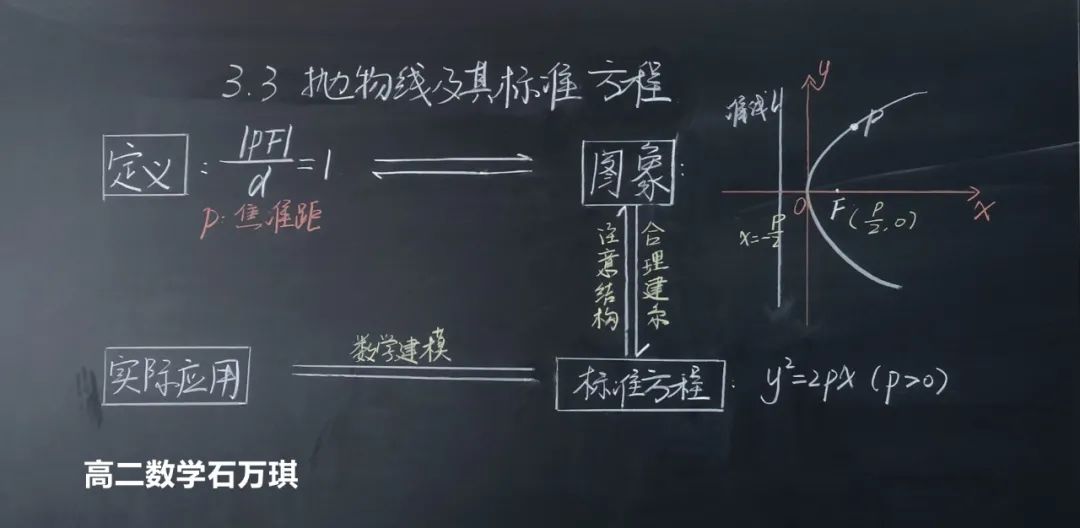 3.3 抛物线及其标准方程
定义 : |PF|/d = 1
p: 焦准距
图象 :
准线 l
y
P
O
F
(p/2, 0)
x
x=-p/2
注意结构
合理建系
实际应用
数学建模
标准方程 : y²=2px (p>0)
高二数学石万琪